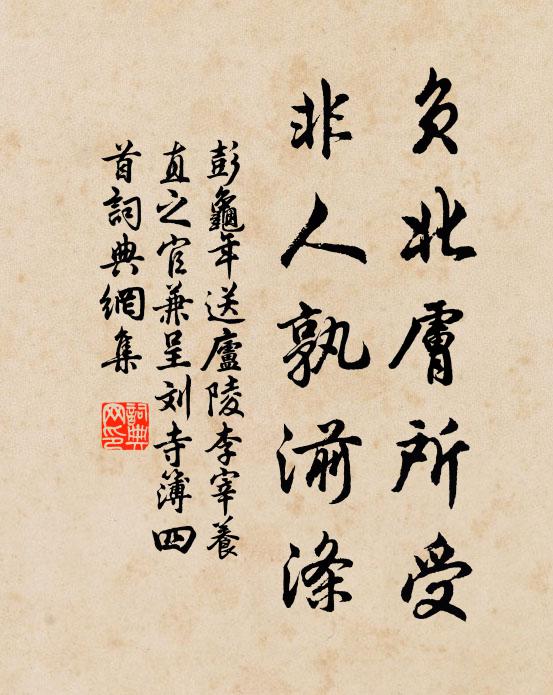 负此膚所受
非人孰湔滌
彭龜年送廬陵李宰養
直之官兼呈刘寺簿四
首詞典網集
詞典
网印